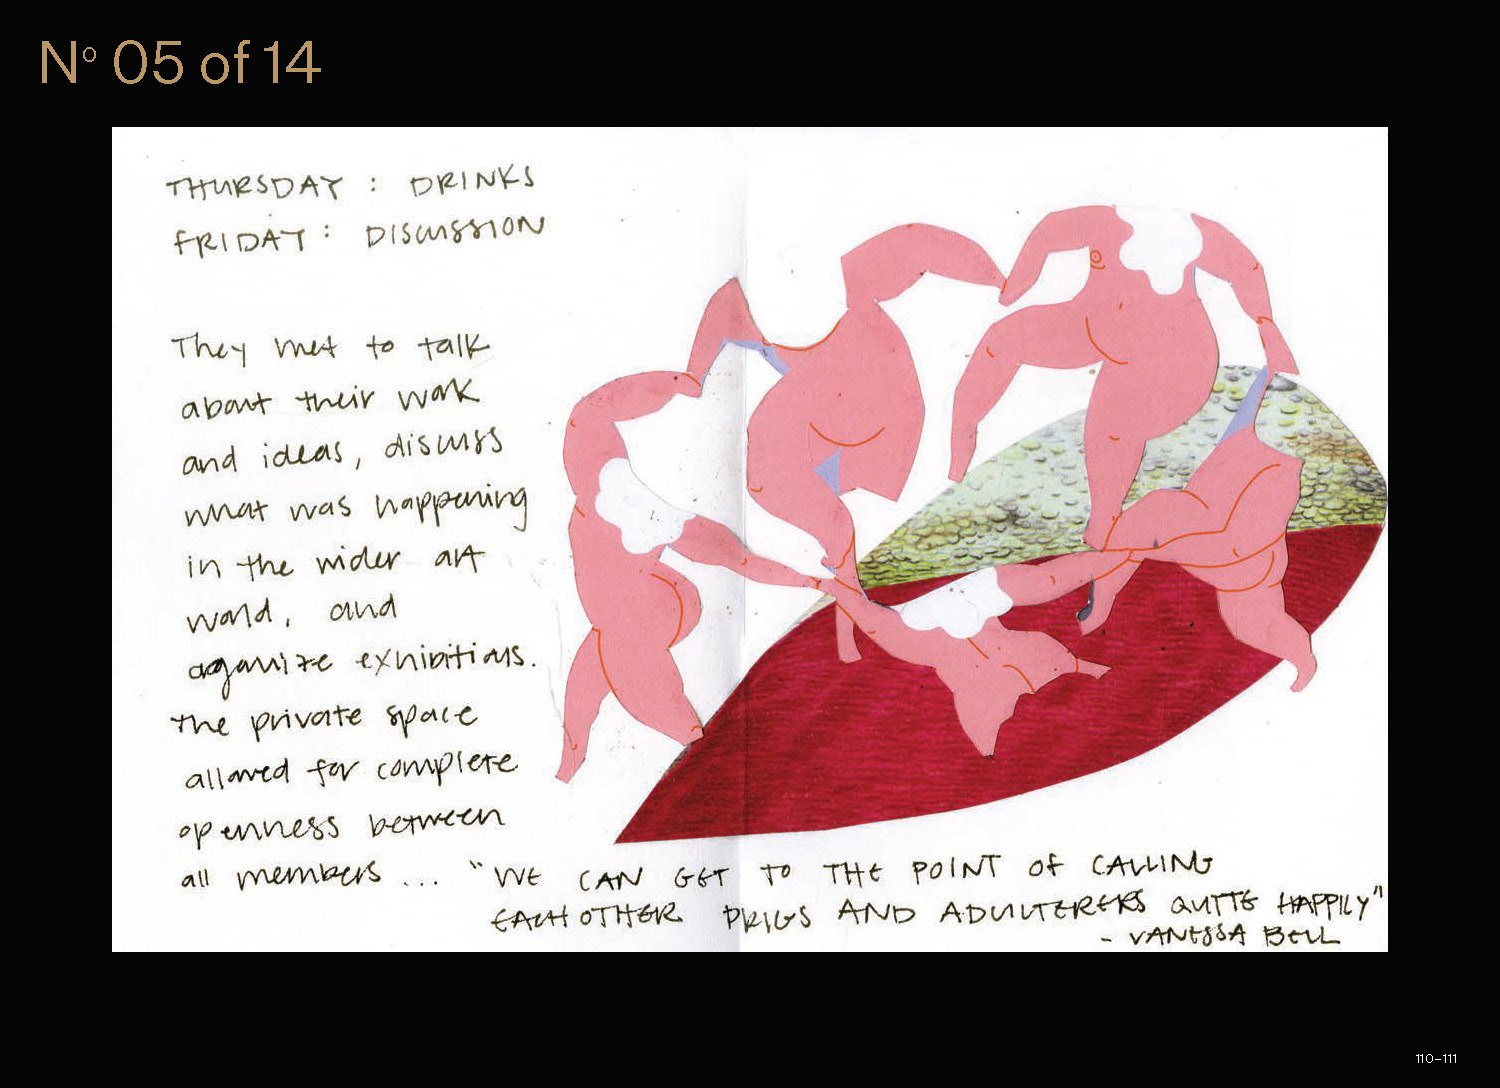 Nº 05 of 14
THURSDAY : DRINKS
FRIDAY : DISCUSSION
They met to talk
about their work
and ideas, discuss
what was happening
in the wider art
world, and
organize exhibitions.
the private space
allowed for complete
openness between
all members ... "WE CAN GET TO THE POINT OF CALLING
EACH OTHER PRIGS AND ADULTERERS QUITE HAPPILY"
- VANESSA BELL
110–111